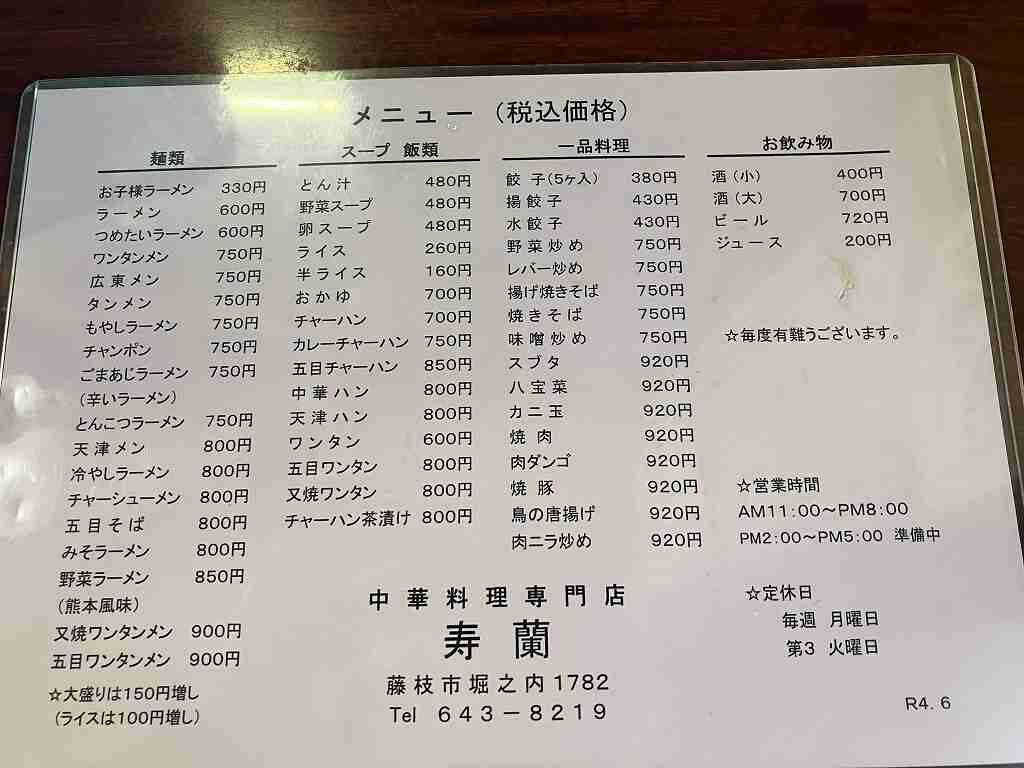 メニュー（税込価格）
麺類
お子様ラーメン 330円
ラーメン 600円
つめたいラーメン 600円
ワンタンメン 750円
広東メン 750円
タンメン 750円
もやしラーメン 750円
チャンポン 750円
ごまあじラーメン 750円
（辛いラーメン）
とんこつラーメン 750円
天津メン 800円
冷やしラーメン 800円
チャーシューメン 800円
五目そば 800円
みそラーメン 800円
野菜ラーメン 850円
（熊本風味）
叉焼ワンタンメン 900円
五目ワンタンメン 900円
☆大盛りは150円増し
（ライスは100円増し）
スープ 飯類
とん汁 480円
野菜スープ 480円
卵スープ 480円
ライス 260円
半ライス 160円
おかゆ 700円
チャーハン 700円
カレーチャーハン 750円
五目チャーハン 850円
中華ハン 800円
天津ハン 800円
ワンタン 600円
五目ワンタン 800円
叉焼ワンタン 800円
チャーハン茶漬け 800円
一品料理
餃子（5ヶ入） 380円
揚餃子 430円
水餃子 430円
野菜炒め 750円
レバー炒め 750円
揚げ焼きそば 750円
焼きそば 750円
味噌炒め 750円
スブタ 920円
八宝菜 920円
カニ玉 920円
焼肉 920円
肉ダンゴ 920円
焼豚 920円
鳥の唐揚げ 920円
肉ニラ炒め 920円
お飲み物
酒（小） 400円
酒（大） 700円
ビール 720円
ジュース 200円
☆毎度有難うございます。
☆営業時間
AM11：00～PM8：00
PM2：00～PM5：00 準備中
☆定休日
毎週 月曜日
第3 火曜日
中華料理専門店
寿蘭
藤枝市堀之内1782
Tel 643－8219
R4.6